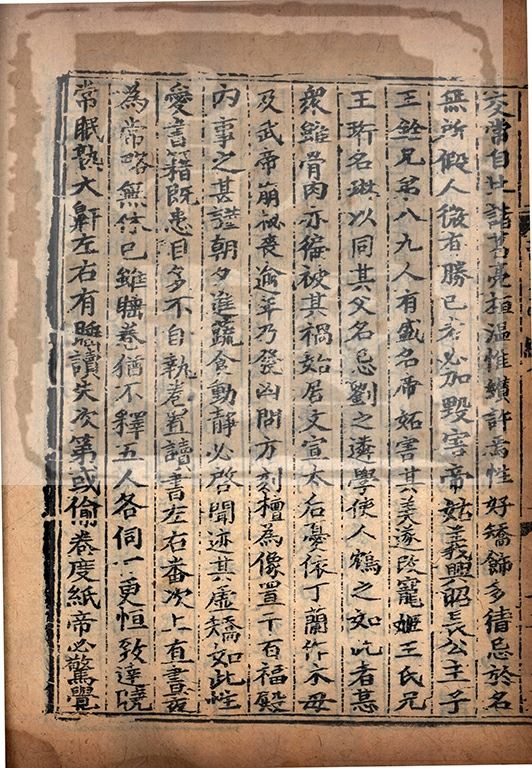 交常自比諸葛亮桓温惟纘許焉性好矯飾多猜忌於名
無所假人微有勝己者必加毀害帝姑義興昭長公主子
王銓兄弟八九人有盛名帝妬害其美遂改寵姬王氏兄
王珩名琳以同其父名忌劉之遴學使人鴆之如此者甚
衆雖骨肉亦徧被其禍始居文宣太后憂依丁蘭作木母
及武帝崩祕喪逾年乃發凶問方刻檀為像置于百福殿
內事之甚謹朝夕進蔬食動静必啓聞迹其虚矯如此性
愛書籍既患目多不自執卷置讀書左右番次上直晝夜
為常略無休已雖睡卷猶不釋五人各伺一更恒致達曉
常眠熟大鼾左右有睡讀失次第或偷卷度紙帝必驚覺